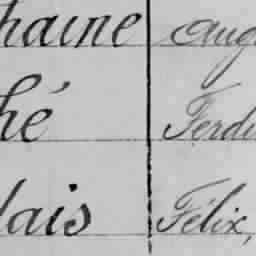 haine Aug
hé Ferdi
lais Félix,